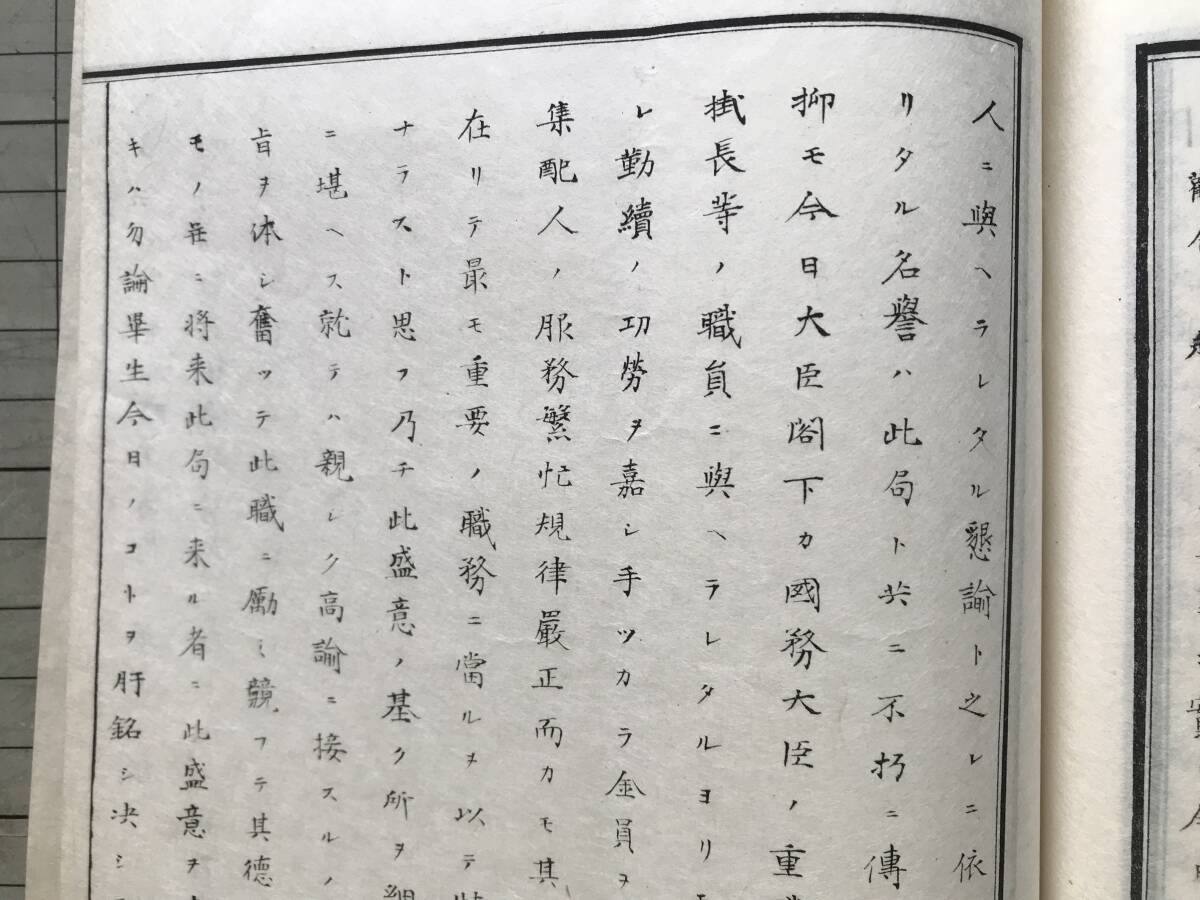 人ニ與ヘラレタル懇諭ト之レニ依
リタル名譽ハ此局ト共ニ不朽ニ傳
抑モ今日大臣閣下カ國務大臣ノ重
掛長等ノ職員ニ與ヘラレタルヨリモ
レ勤續ノ功勞ヲ嘉シ手ツカラ金員ヲ
集配人ノ服務繁忙規律嚴正而カモ其
在リテ最モ重要ノ職務ニ當ルヲ以テ特
ナラスト思フ乃チ此盛意ノ基ク所ヲ細
ニ堪ヘス就テハ親シク高諭ニ接スルノ
旨ヲ体シ奮ツテ此職ニ勵ミ競フテ其德
モノ並ニ将来此局ニ来ル者ニ此盛意ヲ
キハ勿論畢生今日ノコトヲ肝銘シ决シ